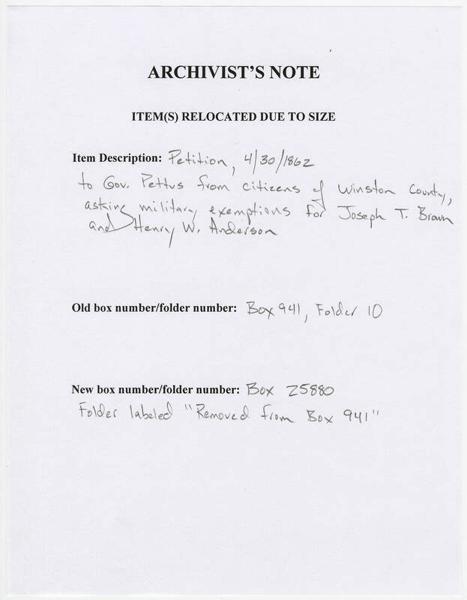 ARCHIVIST'S NOTE
ITEM(S) RELOCATED DUE TO SIZE
Item Description: Petition, 4/30/1862
to Gov. Pettus from citizens of Winston County,
asking military exemptions for Joseph T. Brown
and Henry W. Anderson
Old box number/folder number: Box 941, Folder 10
New box number/folder number: Box 25880
Folder labeled "Removed from Box 941"